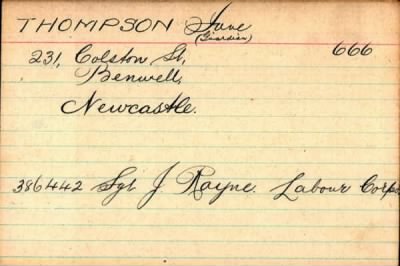 THOMPSON Jane
(Guardian)
666
231, Colston St,
Benwell,
Newcastle.
386442 Sgt J Rayne. Labour Corps